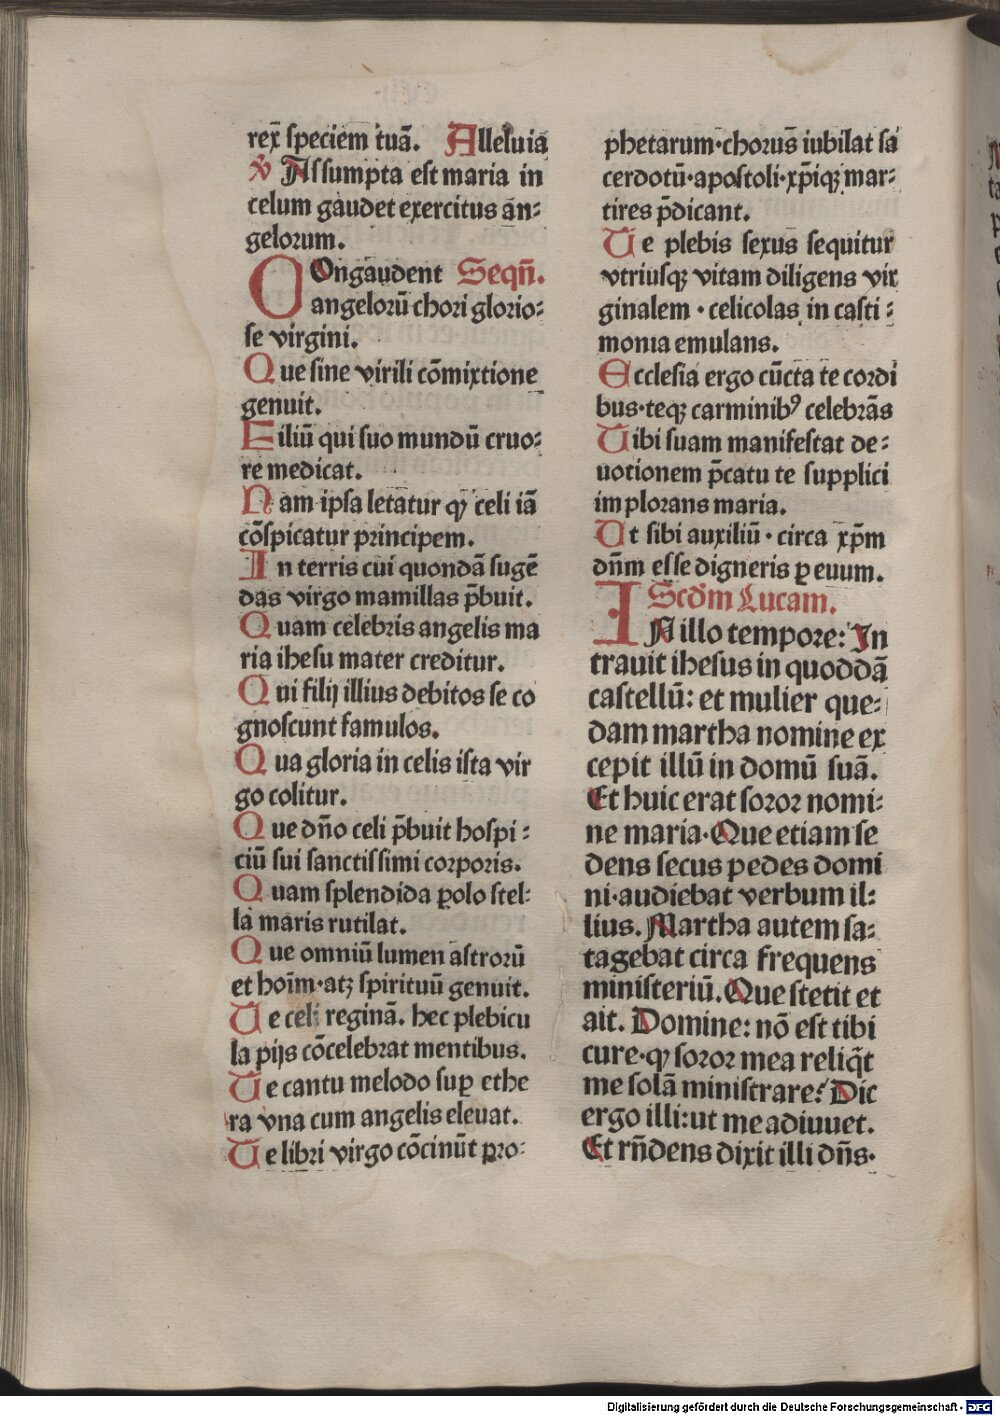 rex̄ ſpeciem tuā. Alleluia
℣ Aſſumpta eſt maria in
celum gaudet exercitus an⸗
gelorum.
COngaudent Seqn̄.
angelorū chori glorio⸗
ſe virgini.
Que ſine virili cōmixtione
genuit.
Filiū qui ſuo mundū cruo⸗
re medicat.
Nam ipſa letatur ꝙ celi iā
cōſpicatur principem.
In terris cui quondā ſugē
das virgo mamillas p̄buit.
Quam celebris angelis ma
ria iheſu mater creditur.
Qui filij illius debitos ſe co
gnoſcunt famulos.
Qua gloria in celis iſta vir
go colitur.
Que dn̄o celi p̄buit hoſpi⸗
ciū ſui ſanctiſſimi corporis.
Quam ſplendida polo ſtel⸗
la maris rutilat.
Que omniū lumen aſtrorū
et hoīm·atꝫ ſpirituū genuit.
Te celi reginā. hec plebicu
la pijs cōcelebrat mentibus.
Te cantu melodo ſuꝑ ethe
ra vna cum angelis eleuat.
Te libri virgo cōcinūt pro⸗
phetarum·chorus̄ iubilat ſa
cerdotū·apoſtoli·xp̄iqꝫ mar⸗
tires p̄dicant.
Te plebis ſexus ſequitur
vtriuſqꝫ vitam diligens vir
ginalem·celicolas in caſti⸗
monia emulans.
Eccleſia ergo cūcta te cordi
bus·teqꝫ carminibꝰ celebrās
Tibi ſuam manifeſtat de⸗
uotionem p̄catu te ſupplici
implorans maria.
Ut ſibi auxiliū·circa xp̄m
dn̄m eſſe digneris ꝑ euum.
Scd̄m Lucam.
IN illo tempore: In
trauit iheſus in quoddā
caſtellū: et mulier que⸗
dam martha nomine ex
cepit illū in domū ſuā.
Et huic erat ſoror nomi⸗
ne maria·Que etiam ſe
dens ſecus pedes domi
ni·audiebat verbum il⸗
lius. Martha autem ſa⸗
tagebat circa frequens
miniſteriū. Que ſtetit et
ait. Domine: nō eſt tibi
cure·ꝙ ſoror mea reliq̄t
me ſolā miniſtrare? Dic
ergo illi: ut me adiuuet.
Et rn̄dens dixit illi dn̄s·
Digitalisierung gefördert durch die Deutsche Forschungsgemeinschaft - DFG